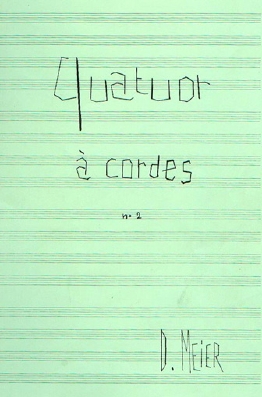 Quatuor
à cordes
n. 2
D. MEiER